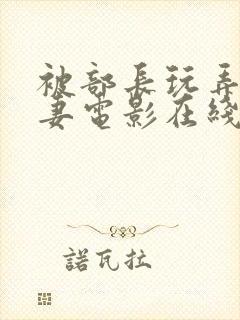 被部長玩弄
妻電影在綫
諾瓦拉